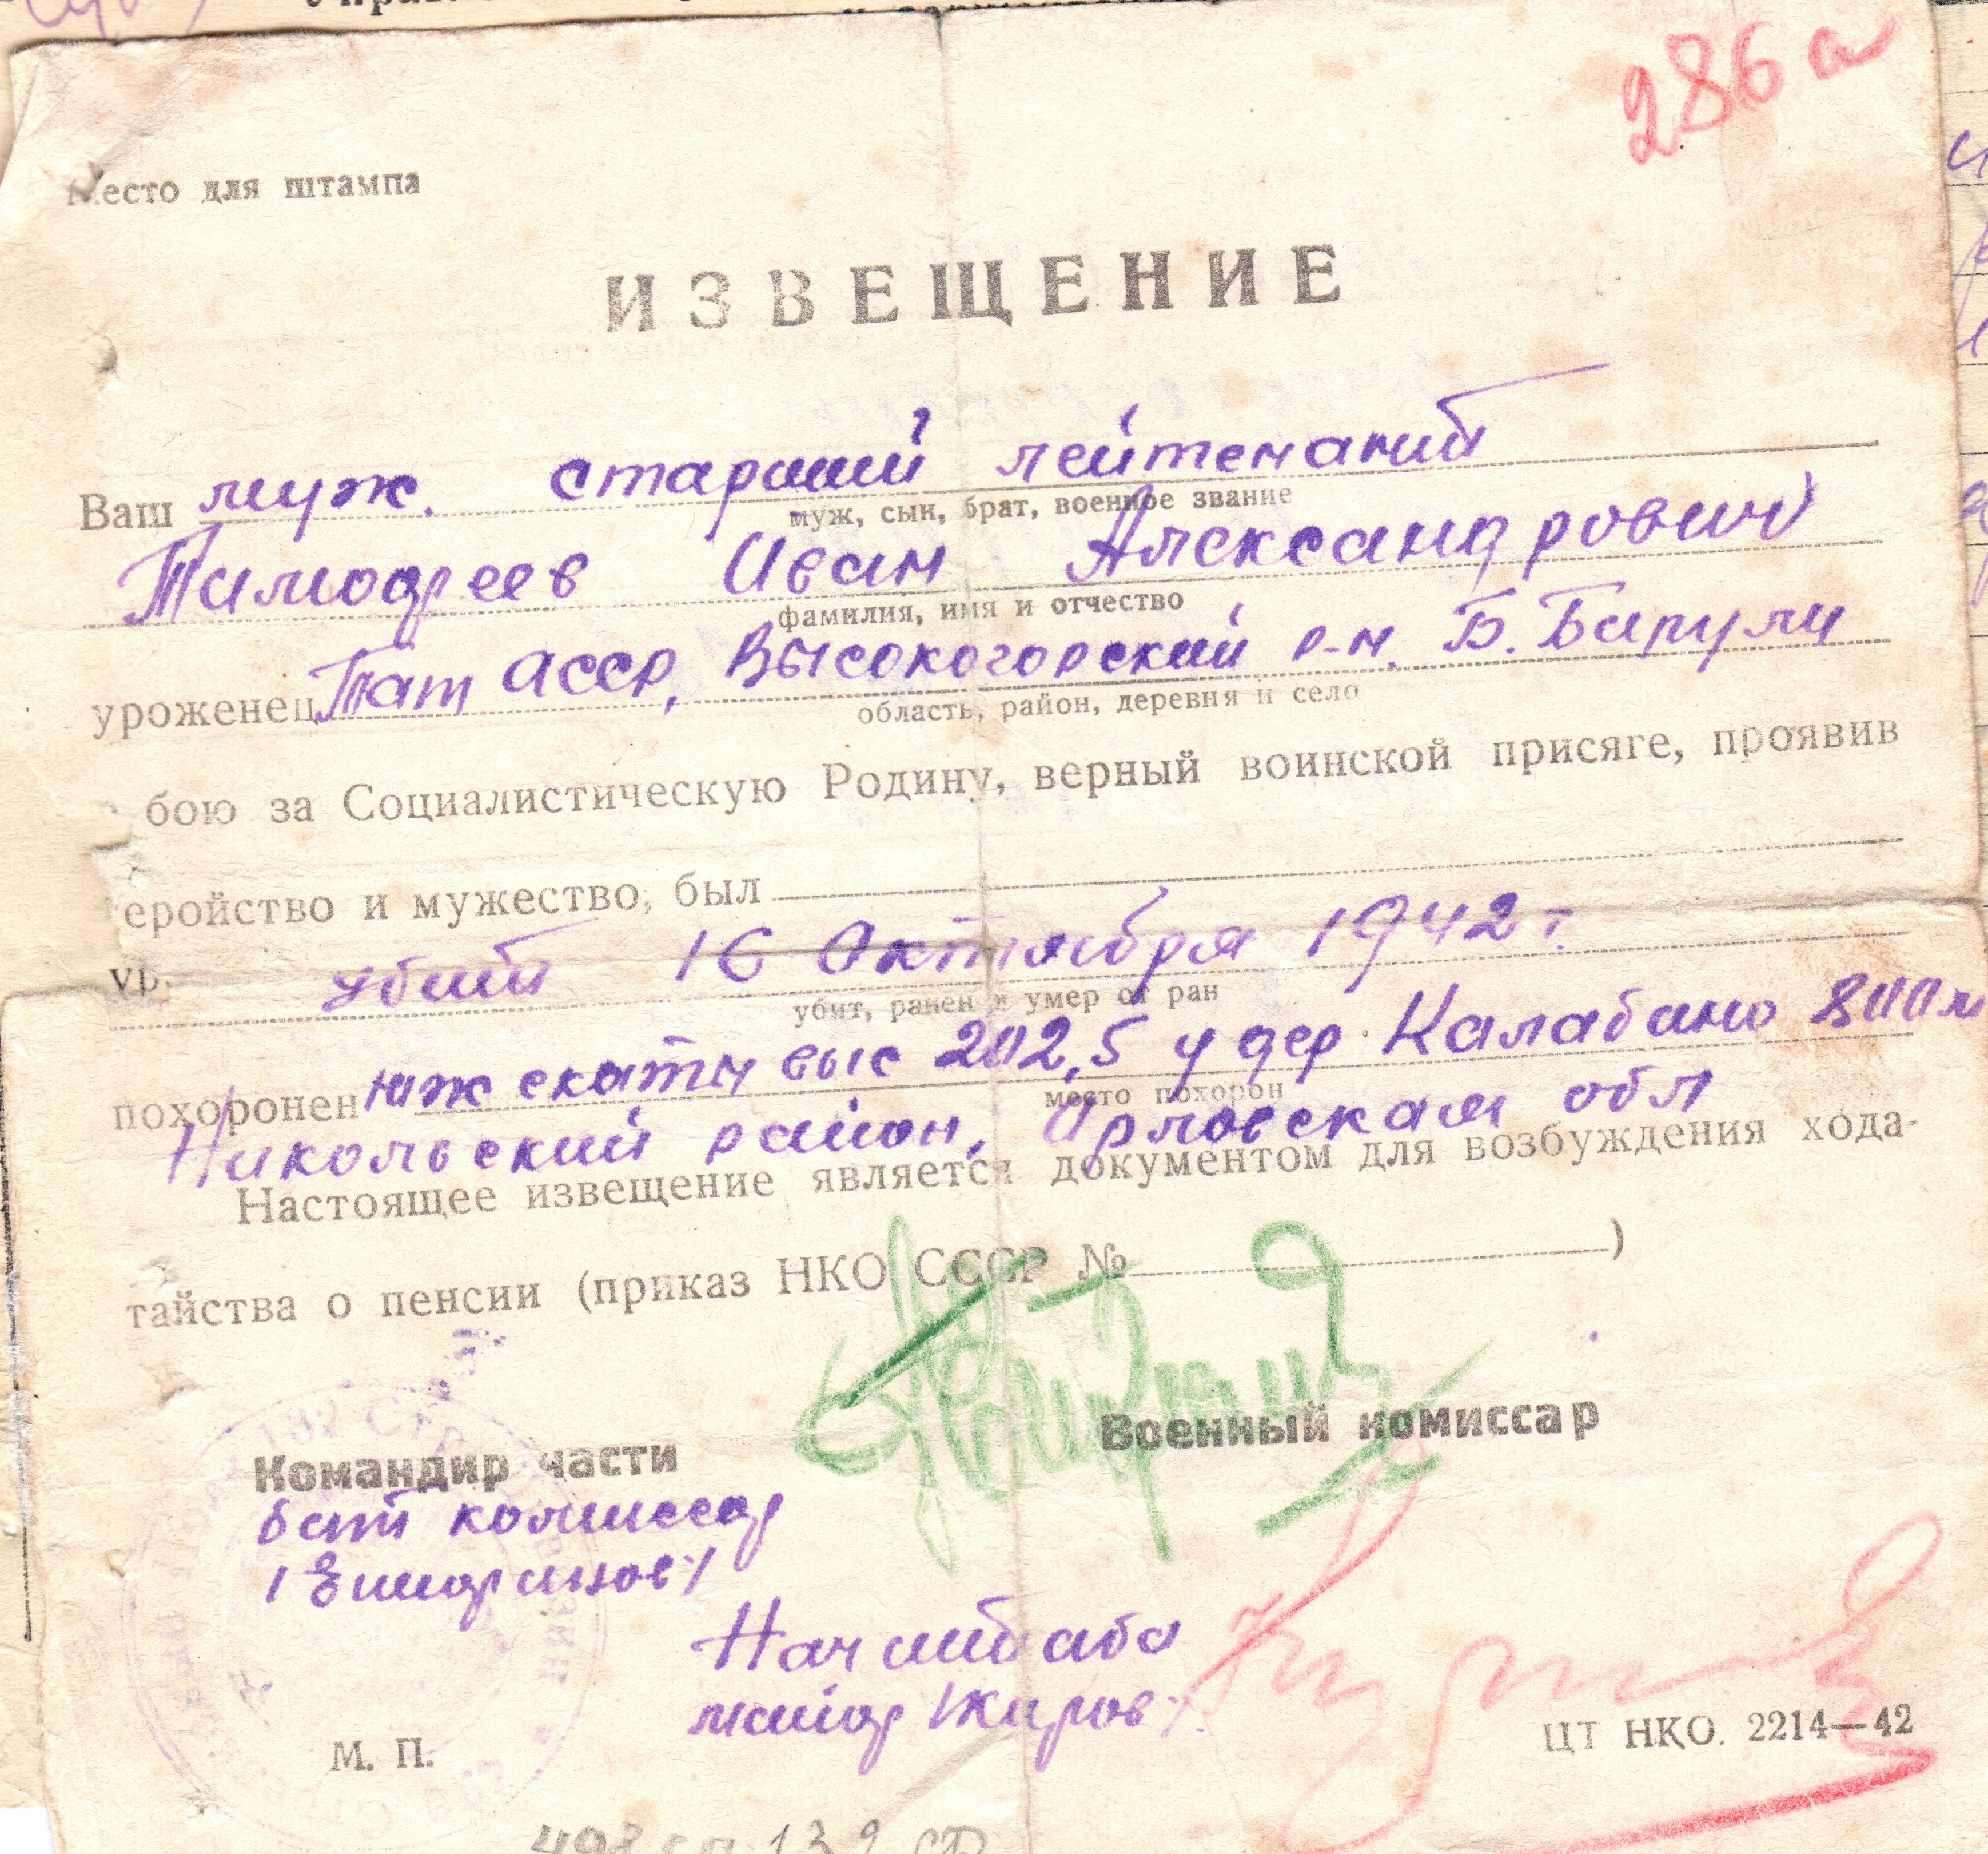 286 а
Место для штампа
ИЗВЕЩЕНИЕ
Ваш муж. старший лейтенант
муж, сын, брат, военное звание
Тимофеев Иван Александрович
фамилия, имя и отчество
уроженец Тат АССР, Высокогорский р-н. Б. Бирули
область, район, деревня и село
бою за Социалистическую Родину, верный воинской присяге, проявив
еройство и мужество, был
ур. убит 16 Октября 1942 г.
убит, ранен и умер от ран
похоронен юж скаты выс 202,5 у дер. Калабино 800 м
место похорон
Никольский район, Орловская обл
Настоящее извещение является документом для возбуждения хода-
тайства о пенсии (приказ НКО СССР №)
Командир части
Военный комиссар
бат комиссар
Нач штаба
майор /Жиров/
М. П.
ЦТ НКО. 2214—42